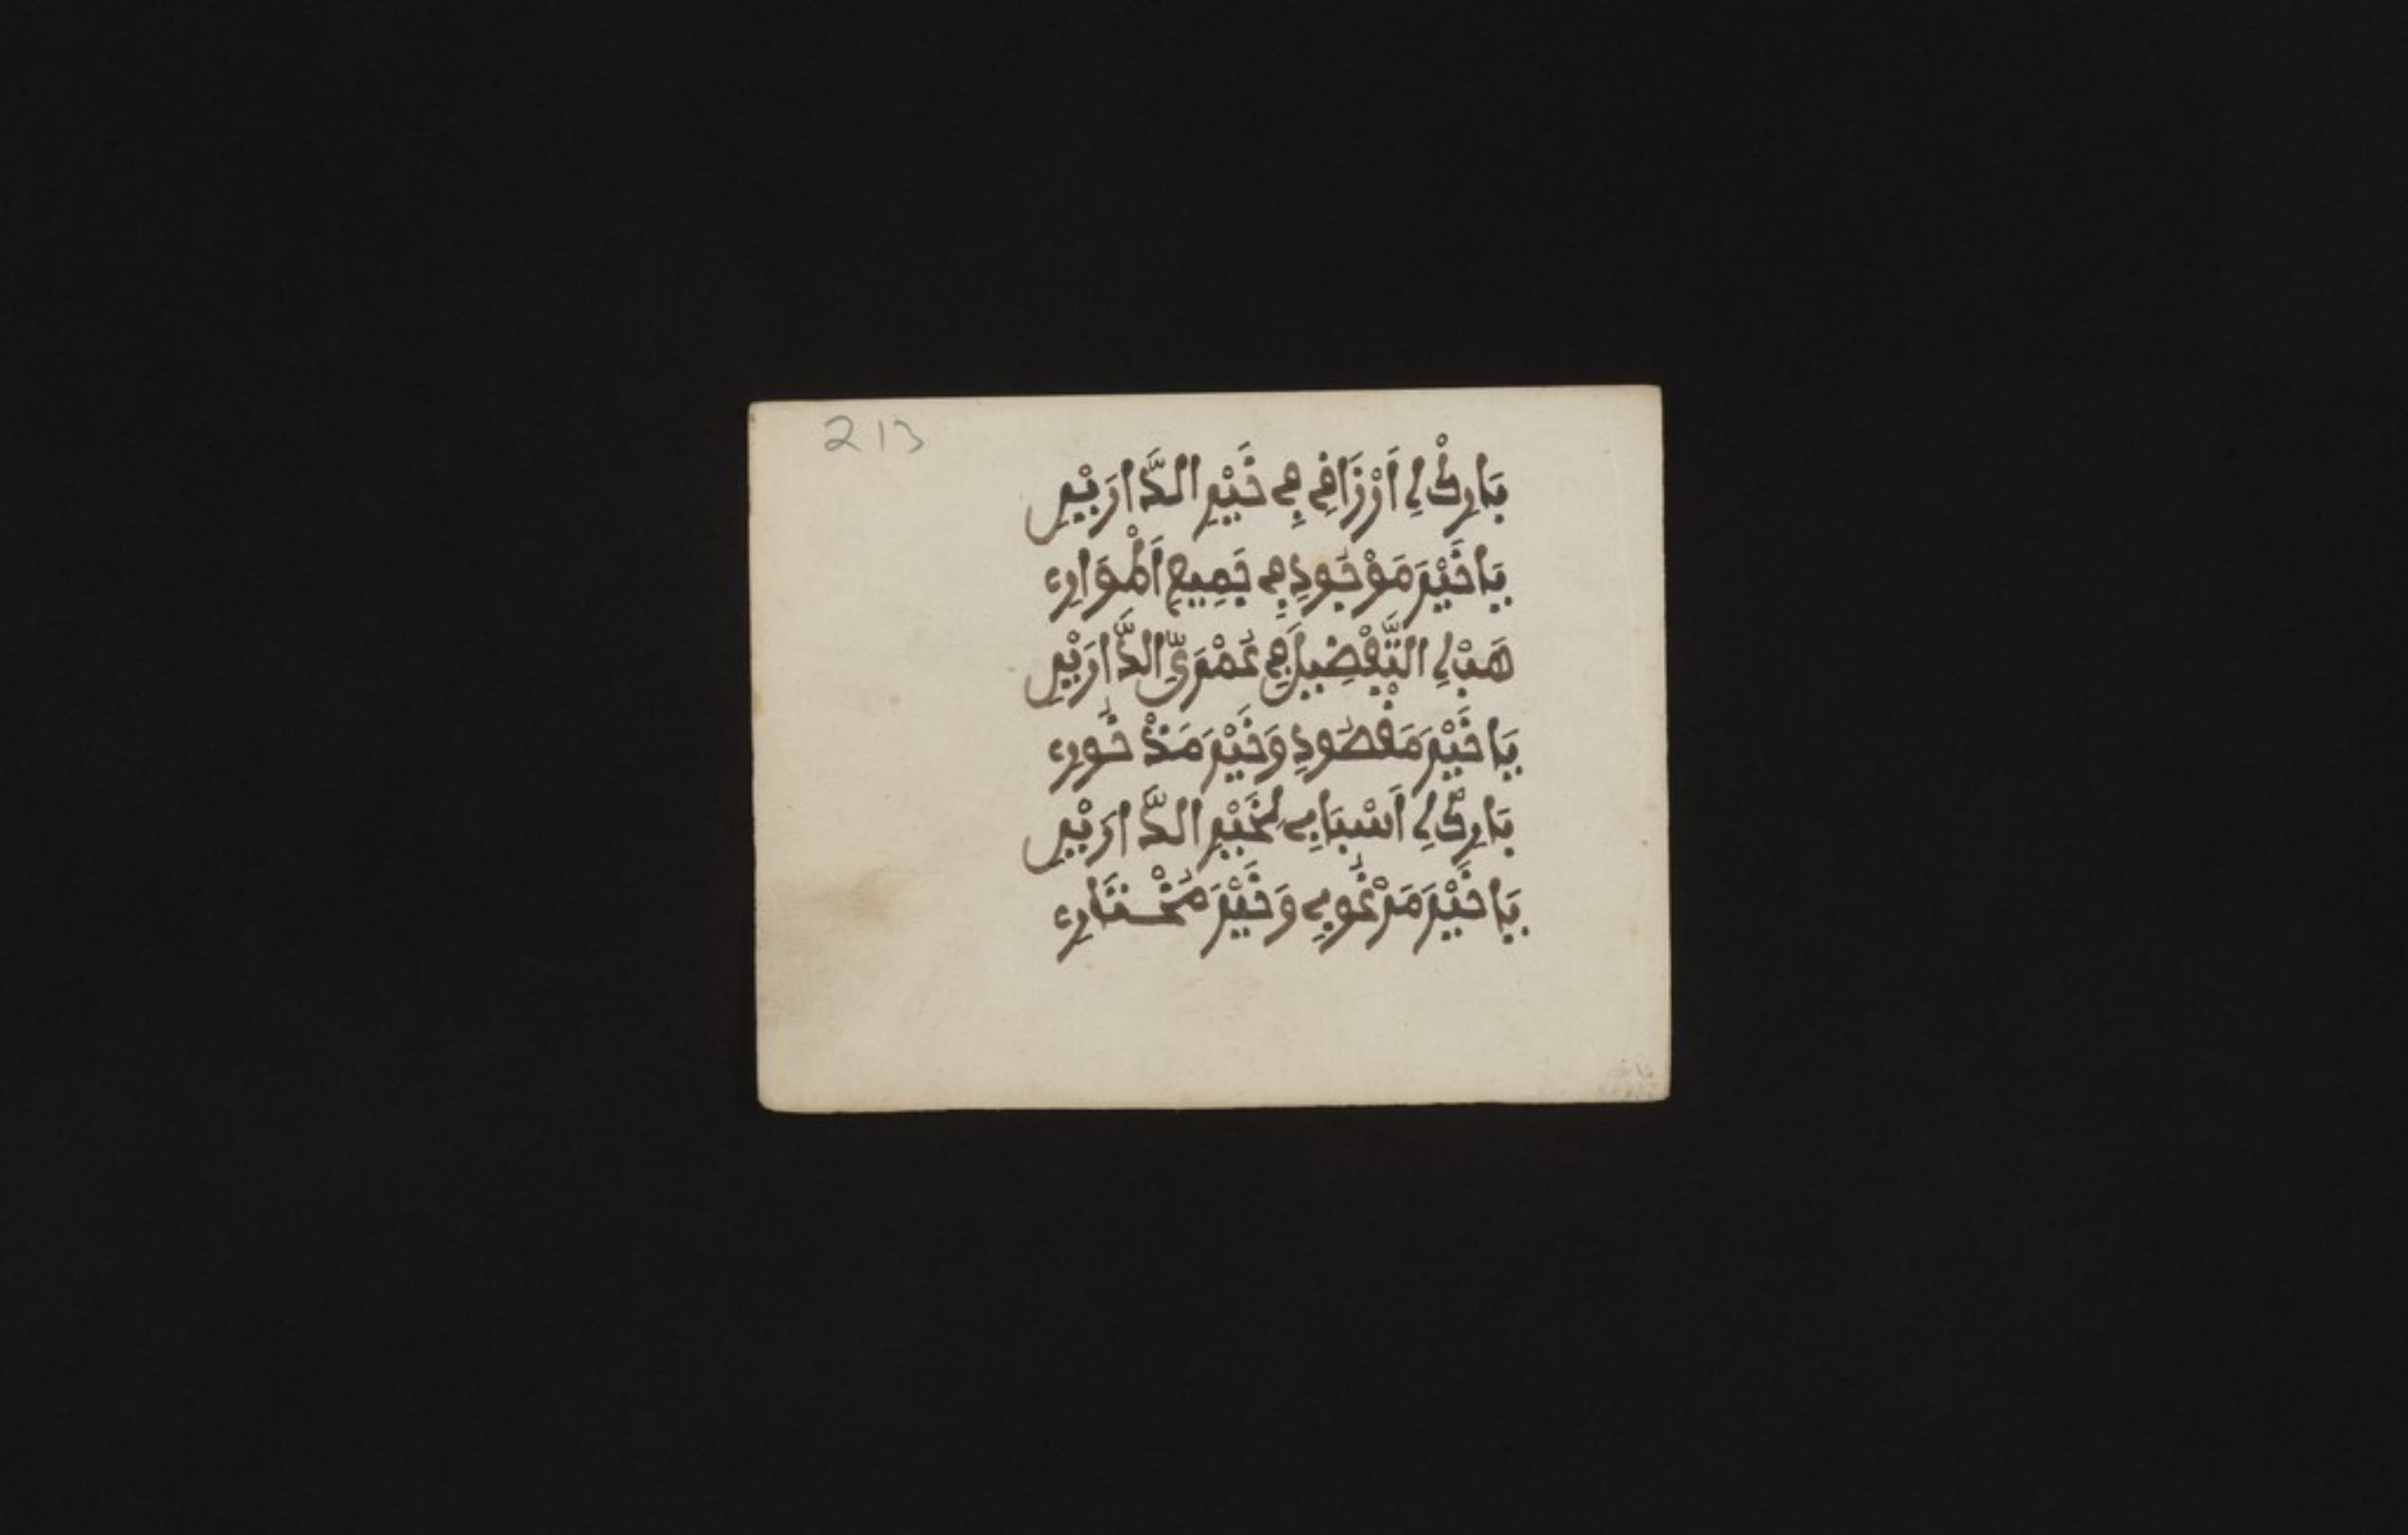 213
بَارِكْ لِے أَرْزَافِے بِے خَيْرِ الدَّارَيْنِ
يَا خَيْرَ مَوْجُودٍ بِے جَمِيعِ أَلْمَوَارِے
هَبْ لِے التَّبْضِيلَ بِے عُمْرَيِّ الدَّارَيْنِ
يَا خَيْرَ مَفْصُودٍ وَخَيْرَ مَذْخُورِے
بَارِكْ لِے أَسْبَابِے لِخَيْرِ الدَّارَيْنِ
يَا خَيْرَ مَرْغُوبِے وَخَيْرَ مُخْتَارِے